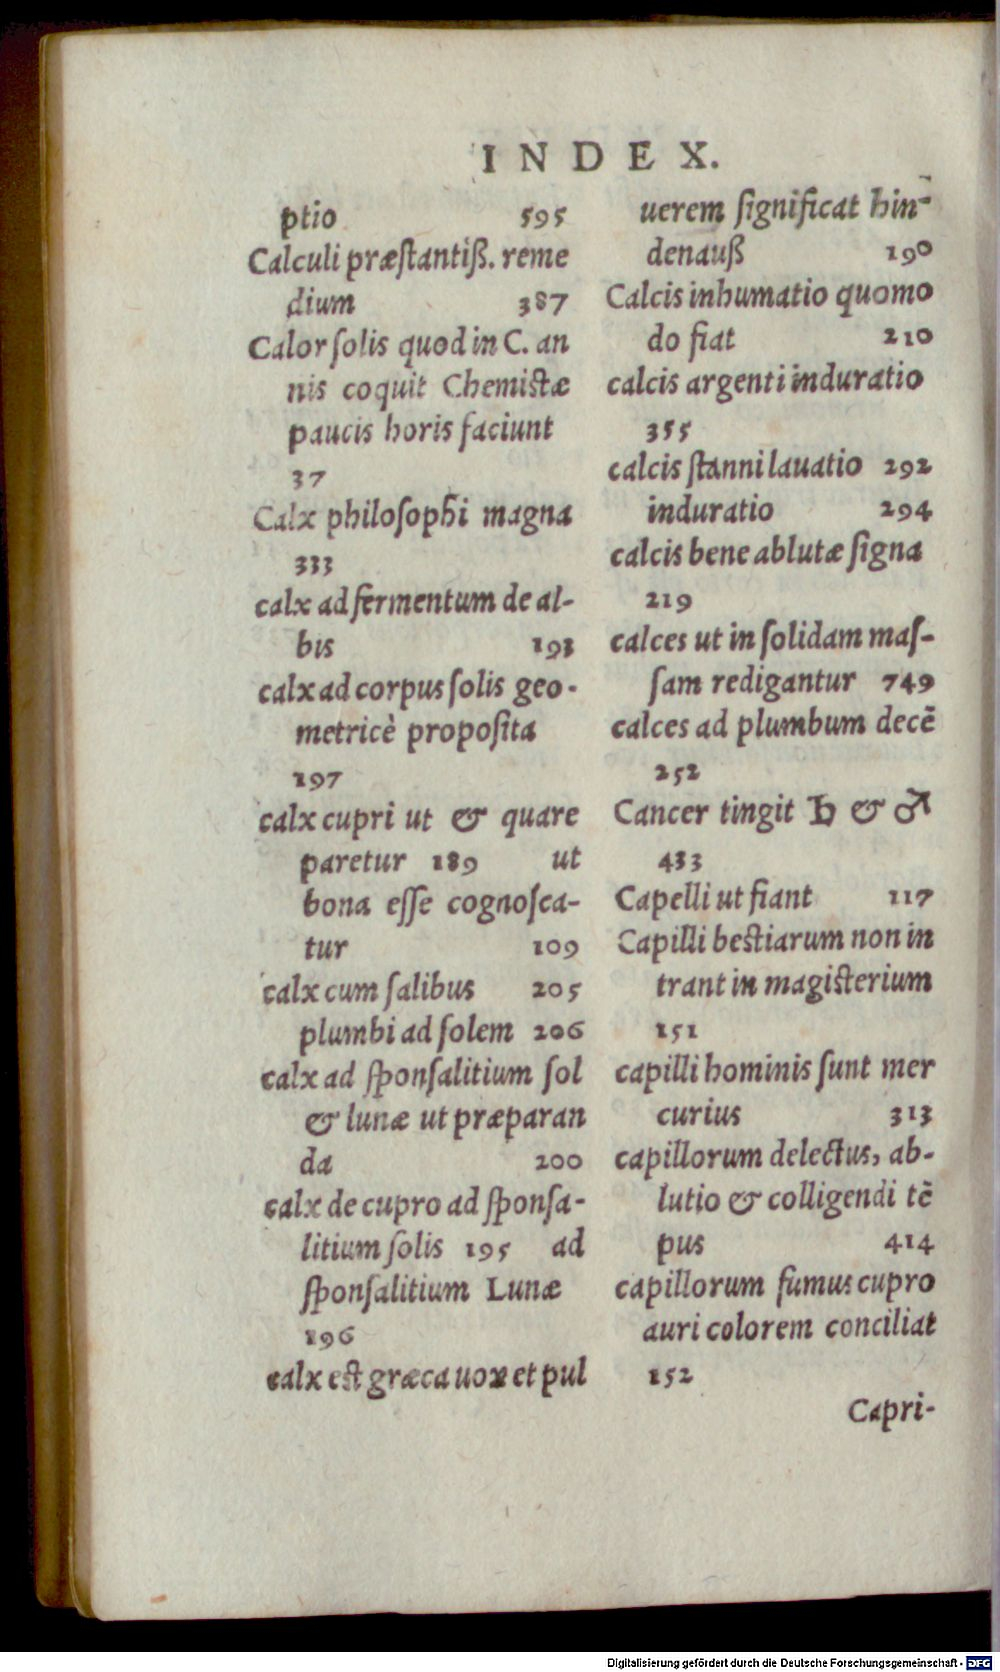 INDEX.
ptio 595
Calculi præſtantiß. reme
dium 387
Calor ſolis quod in C. an
nis coquit Chemistæ
paucis horis faciunt
37
Calx philoſophi magna
333
calx ad fermentum de al-
bis 193
calx ad corpus ſolis geo-
metricè propoſita
197
calx cupri ut & quare
paretur 189 ut
bona eſſe cognoſca-
tur 109
calx cum ſalibus 205
plumbi ad ſolem 206
calx ad ſponſalitium ſol
& lunæ ut præparan
da 200
calx de cupro ad ſponſa-
litium ſolis 195 ad
ſponſalitium Lunæ
196
calx est græca uox et pul
uerem ſignificat hin-
denauß 190
Calcis inhumatio quomo
do fiat 210
calcis argenti induratio
355
calcis ſtanni lauatio 292
induratio 294
calcis bene ablutæ ſigna
219
calces ut in ſolidam maſ-
ſam redigantur 749
calces ad plumbum decẽ
252
Cancer tingit ♄ & ♂
433
Capelli ut fiant 117
Capilli bestiarum non in
trant in magisterium
151
capilli hominis ſunt mer
curius 313
capillorum delectus, ab-
lutio & colligendi tẽ
pus 414
capillorum fumus cupro
auri colorem conciliat
152
Capri-
Digitalisierung gefördert durch die Deutsche Forschungsgemeinschaft - DFG